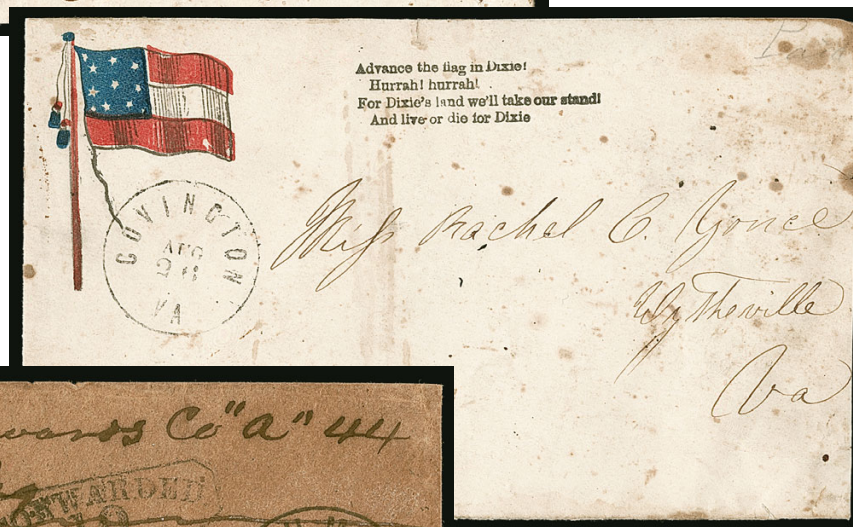 Advance the flag in Dixie!
Hurrah! hurrah!
For Dixie's land we'll take our stand!
And live or die for Dixie
COVINGTON
AUG
VA
Miss Rachel C. Yonce
Wytheville
Va
Co "A" 44
FORWARDED